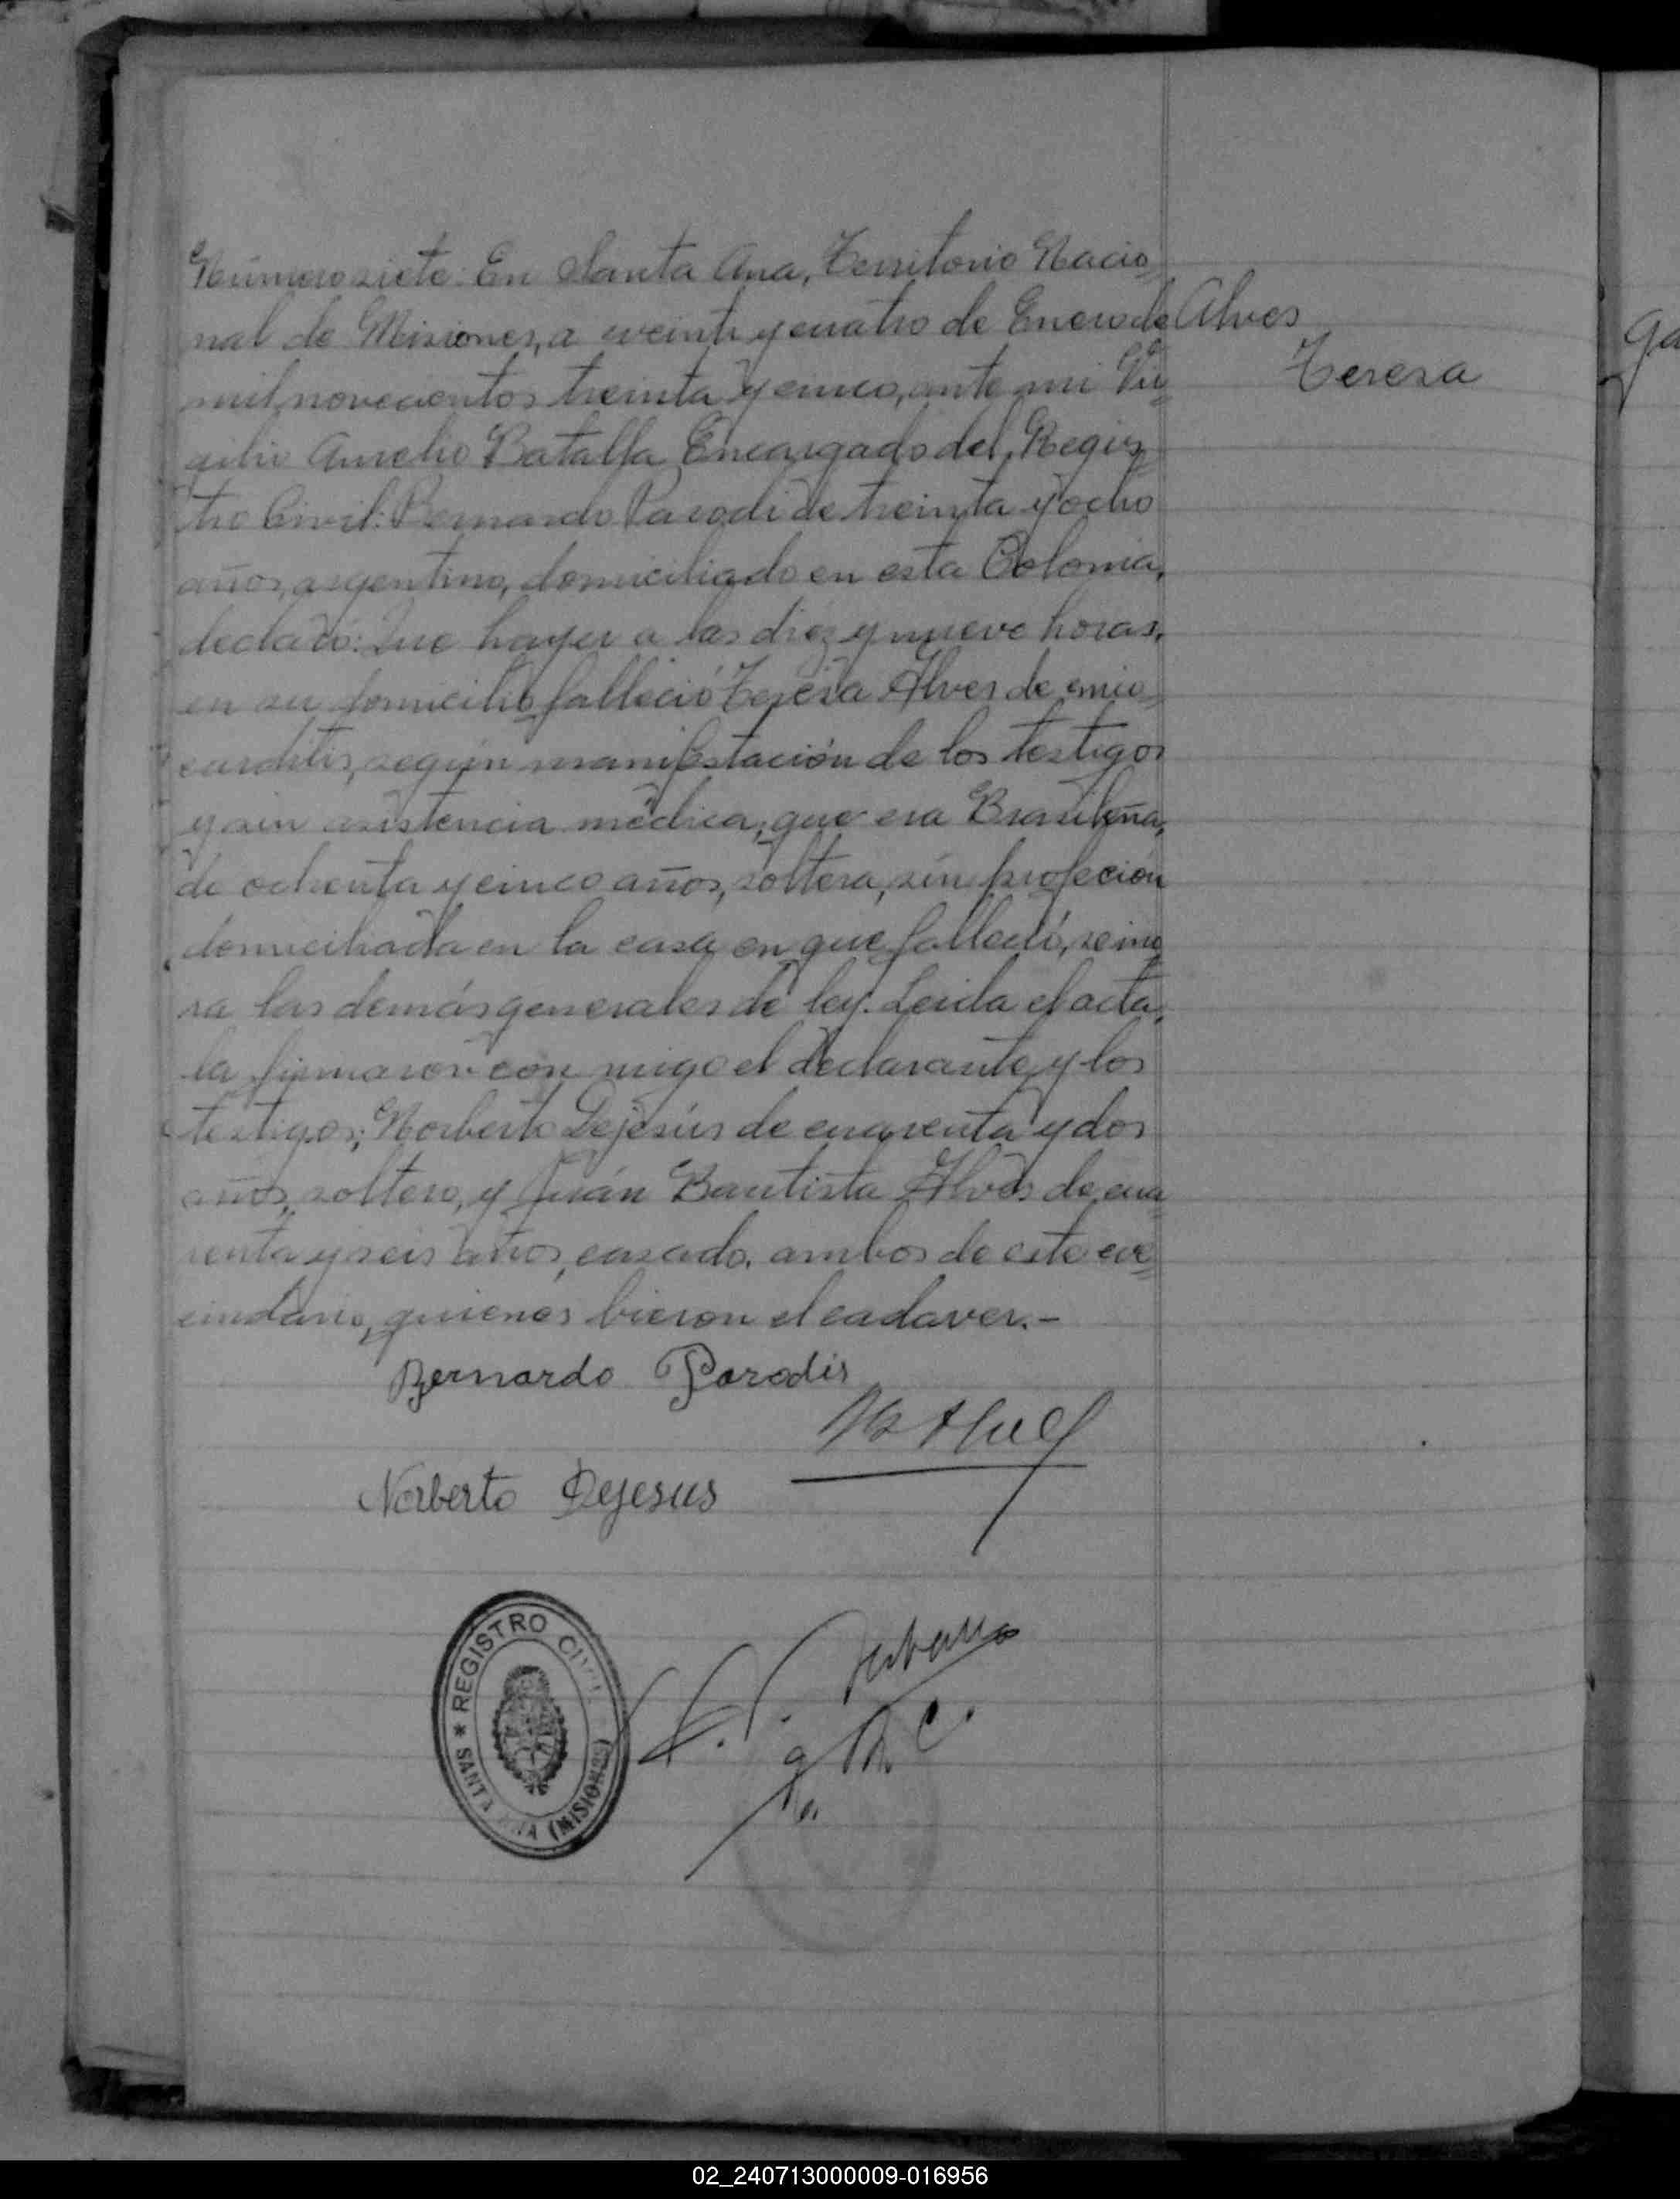 Número siete: En Santa Ana, Territorio Nacio=
nal de Misiones, a veinti y cuatro de Enero de
mil novecientos treinta y cinco, ante mi Vir=
gilio Aurelio Batalla Encargado del Regis=
tro Civil: Bernardo Parodi de treinta y ocho
años, argentino, domiciliado en esta Colonia,
declaró: Que hayer a las diez y nueve horas,
en su domicilio falleció Teresa Alves de mio=
carditis, según manifestación de los testigos
y sin asistencia médica; que era Brasileña,
de ochenta y cinco años, soltera, sin profeción
domiciliada en la casa en que falleció, se igno
ra las demás generales de ley. Leida el acta,
la firmaron con migo el declarante y los
testigos; Norberto Dejesús de cuarenta y dos
años, soltero, y Juán Bautista Alves de cua=
renta y seis años, casado, ambos de este ve=
cindario, quienes bieron el cadaver.-
Alves
Teresa
Bernardo Parodis
Norberto Dejesus
REGISTRO CIVIL
* SANTA ANA (MISIONES)
02_240713000009-016956